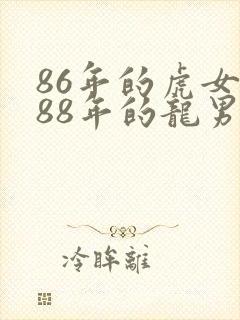 86年的虎女
88年的龍男
冷眸離